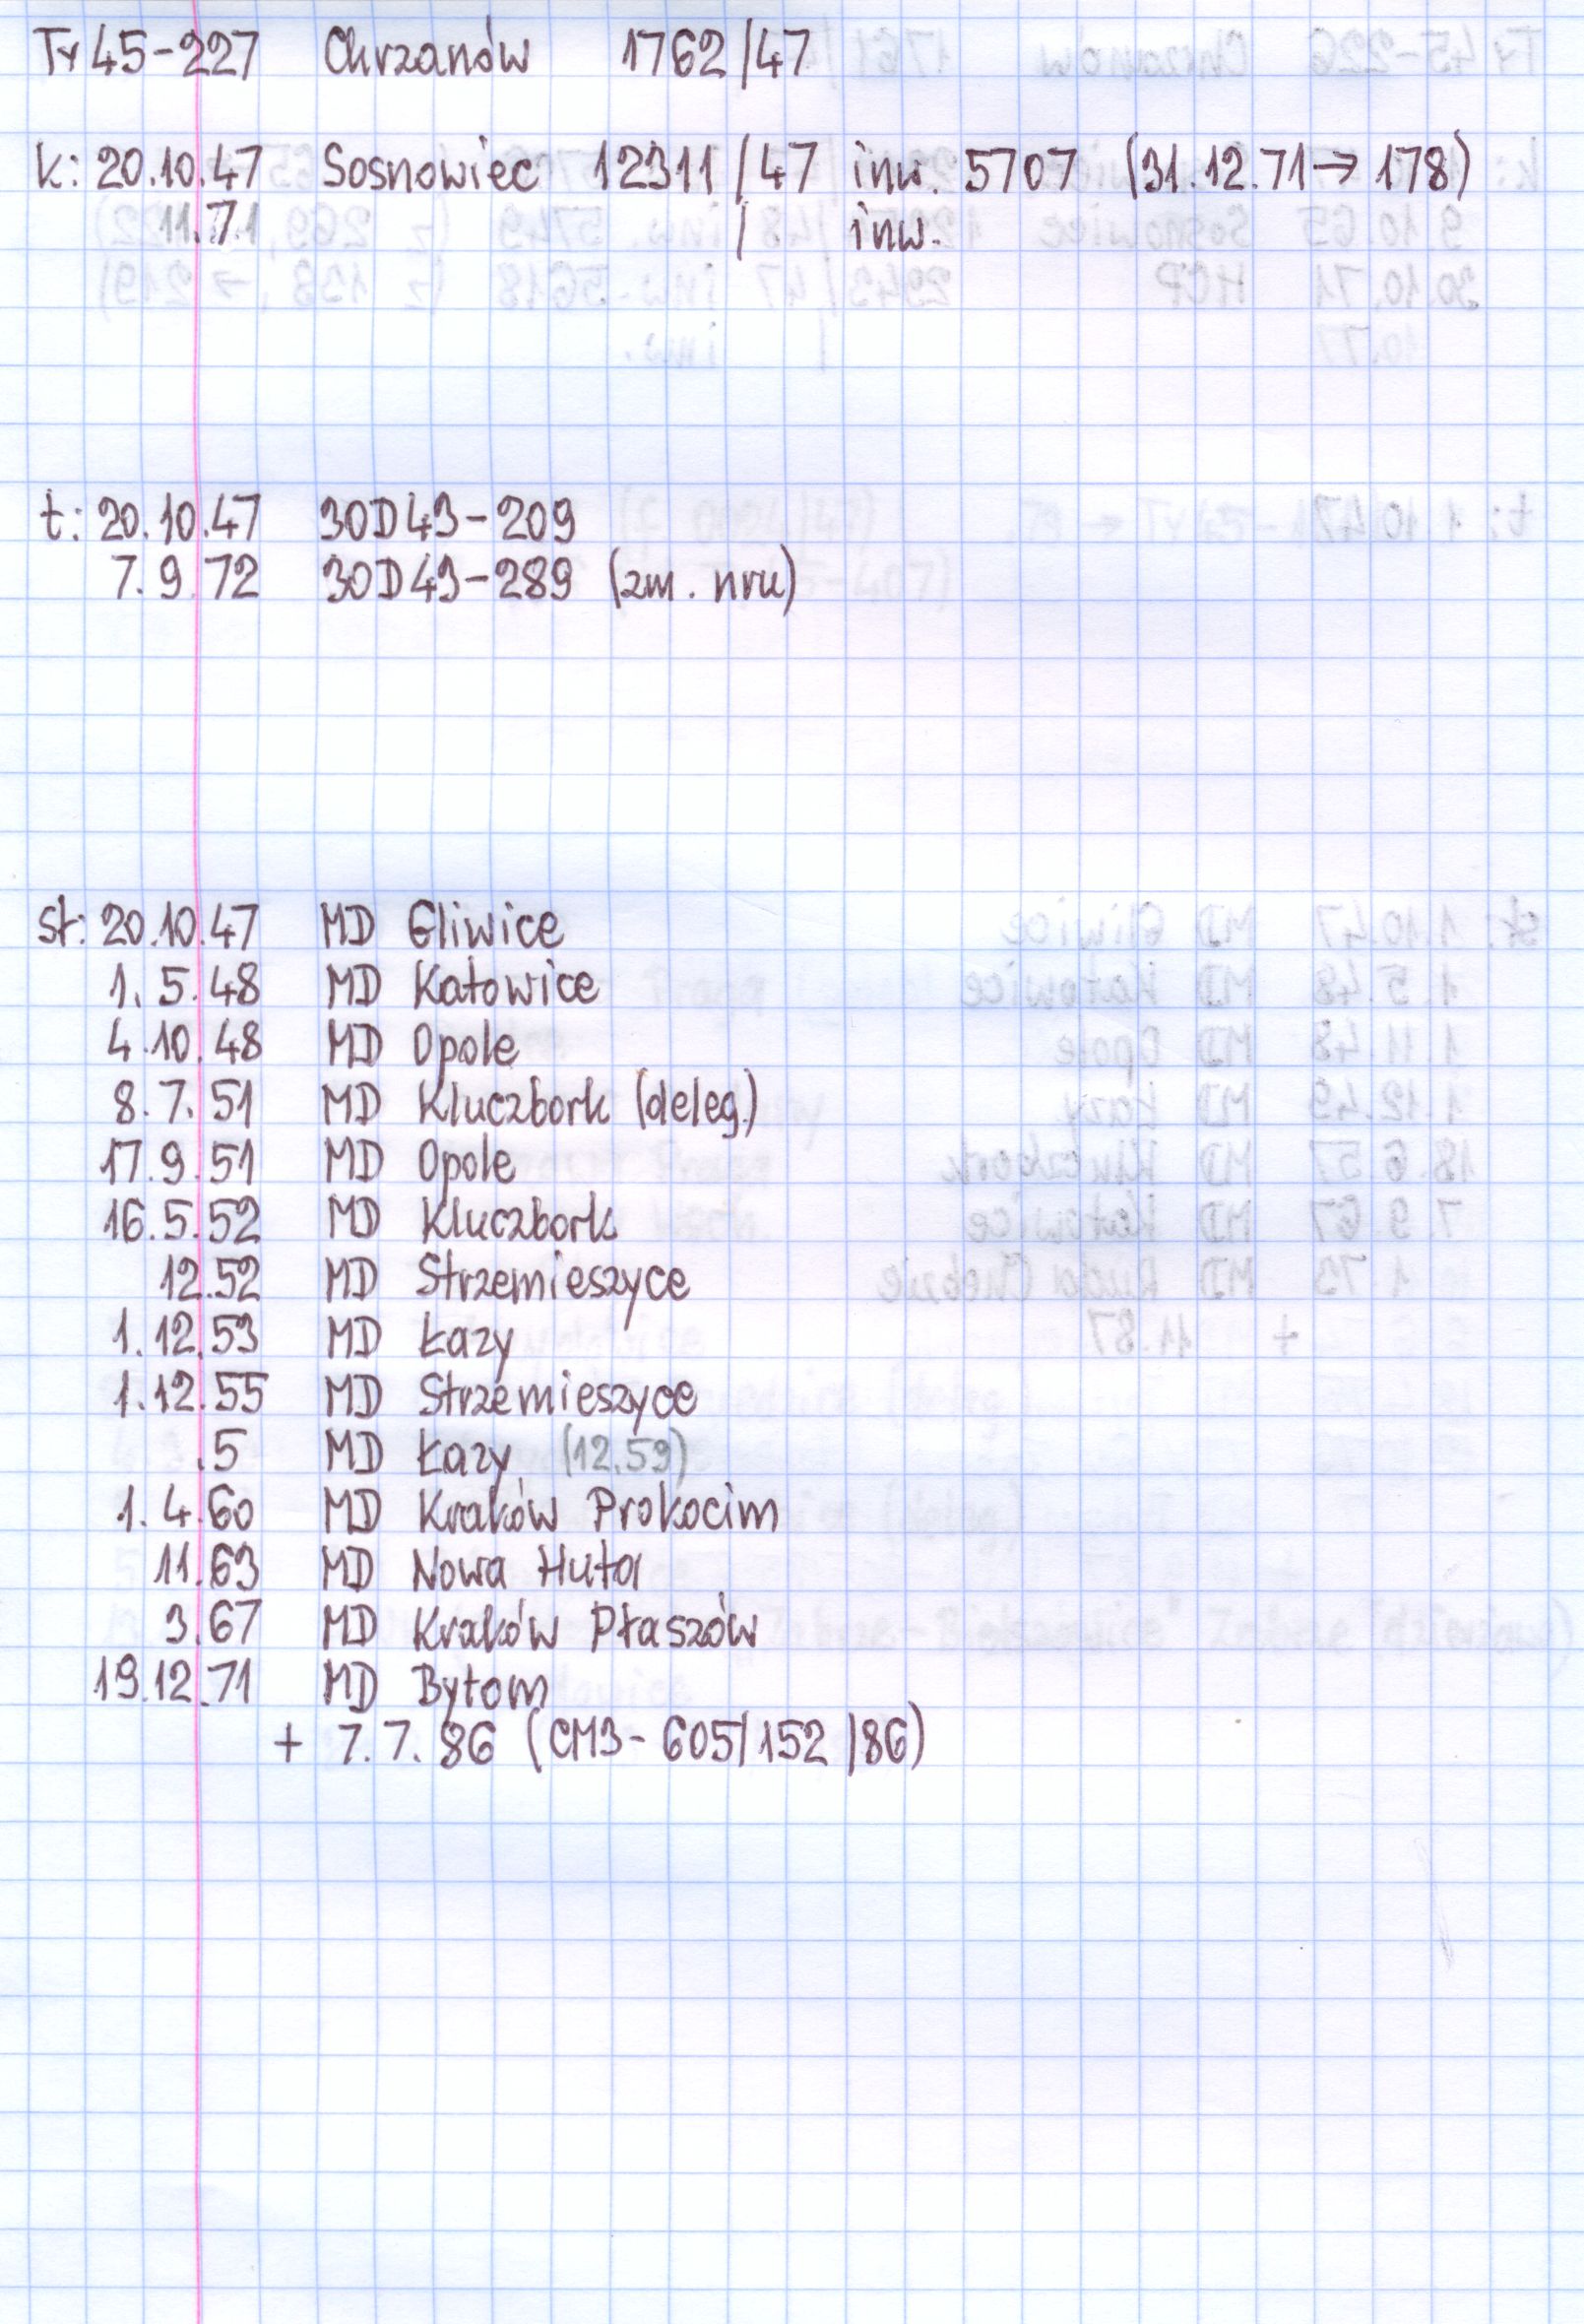 Ty45-227 Chrzanów 1762/47
k: 20.10.47 Sosnowiec 12311/47 inw. 5707 (31.12.71→178)
11.71 / inw.
t: 20.10.47 30D43-209
7.9.72 30D43-289 (zm. nru)
st: 20.10.47 MD Gliwice
1.5.48 MD Katowice
4.10.48 MD Opole
8.7.51 MD Kluczbork (deleg.)
17.9.51 MD Opole
16.5.52 MD Kluczbork
12.52 MD Strzemieszyce
1.12.53 MD Łazy
1.12.55 MD Strzemieszyce
.5 MD Łazy (12.59)
1.4.60 MD Kraków Prokocim
11.63 MD Nowa Huta
3.67 MD Kraków Płaszów
19.12.71 MD Bytom
+ 7.7.86 (CM3-605/152/86)